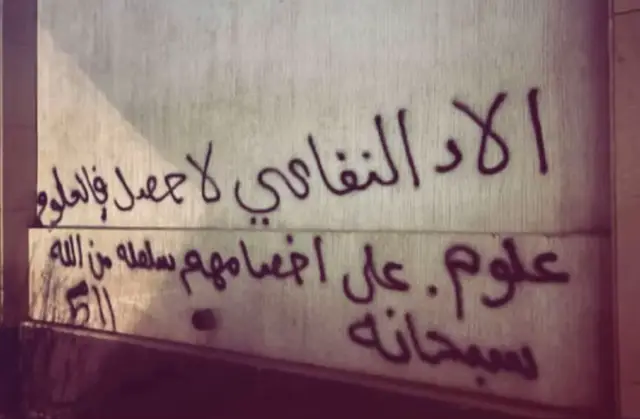 الاد النفاعي لا حصل في العلوم
علوم . على اخصامهم سلطه من الله
سبحانه 511